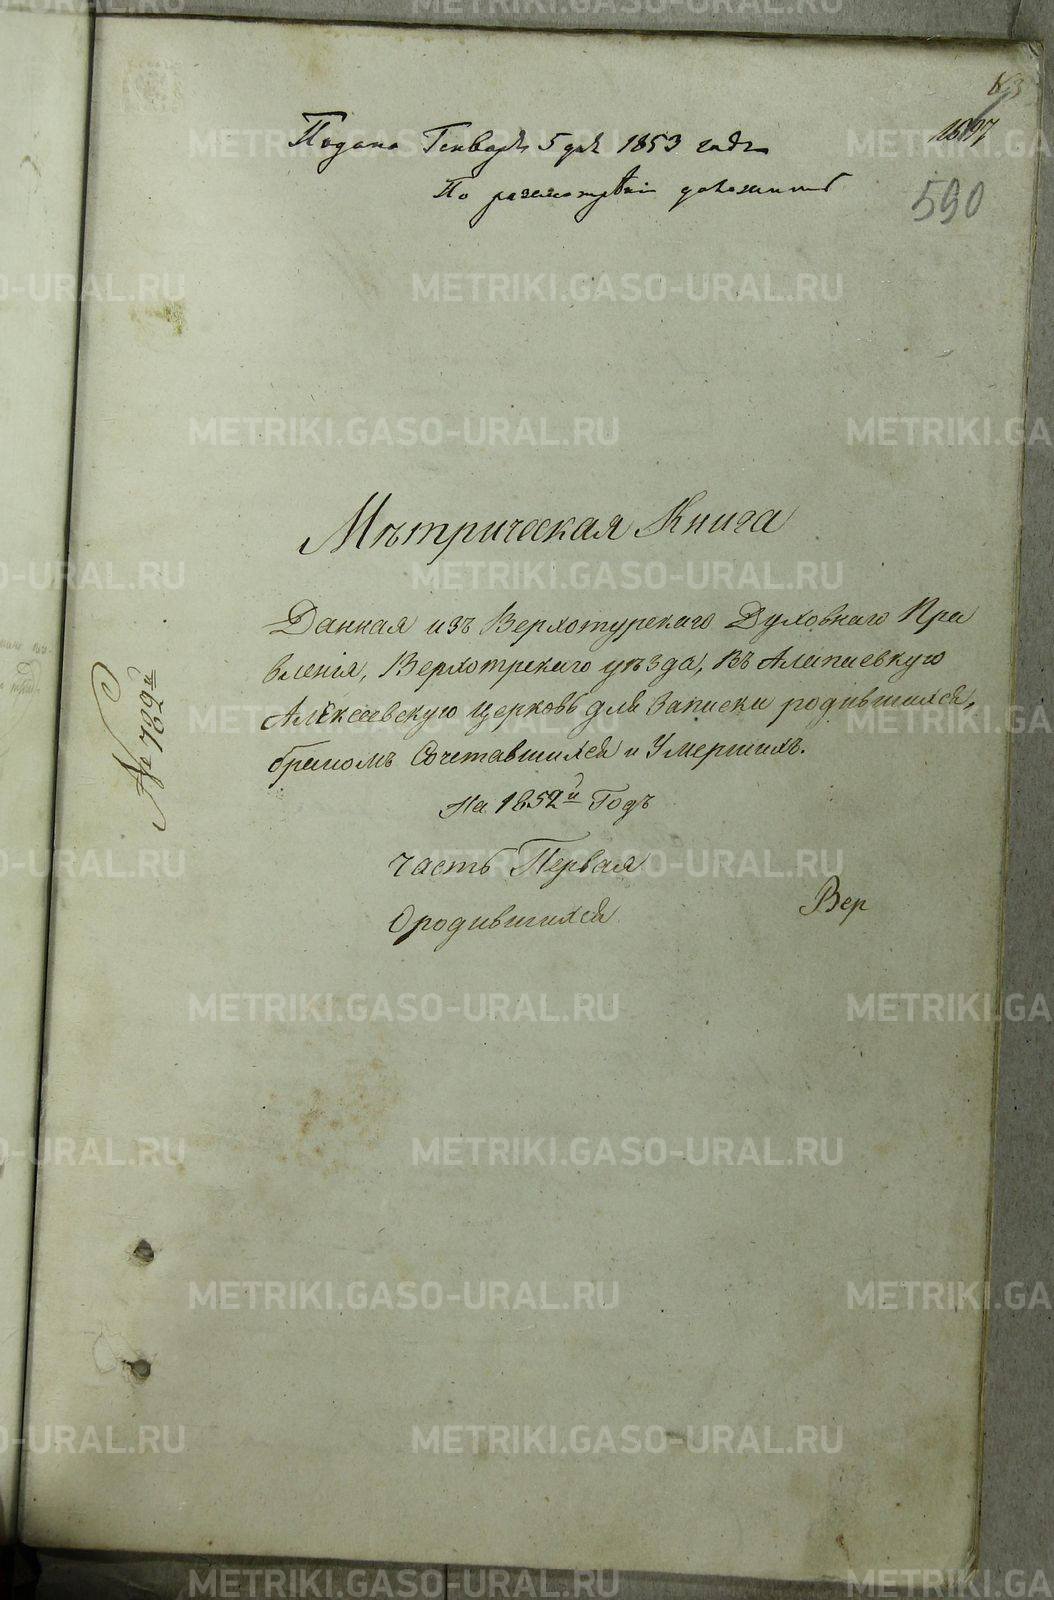 Подана Генваря 5 дня 1853 года
По разсмотреніи доложить
590
Мѣтрическая Книга
Данная изъ Верхотурскаго Духовнаго Пра
вленія, Верхотрскаго уѣзда, Въ Алапаевскую
Алексеевскую церковь для Записки родившихся,
бракомъ Сочетавшихся и Умершихъ.
На 1852й Годъ
Часть Первая
О родившихся
Вер
№ 782й
METRIKI.GASO-URAL.RU